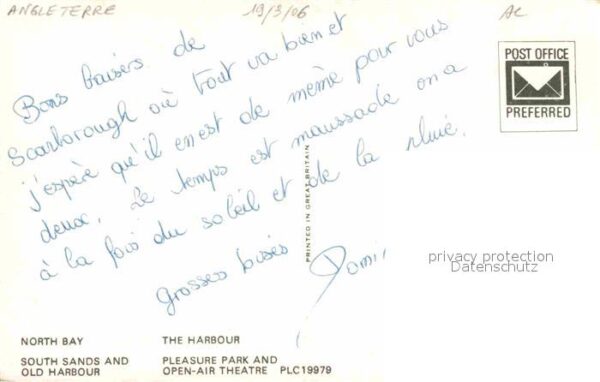 ANGLETERRE
19/3/06
AL
POST OFFICE
PREFERRED
Bons baisers de
Scarborough où tout va bien et
j'espère qu'il en est de même pour vous
deux. Le temps est maussade on a
à la fois du soleil et de la pluie.
grosses bises
Domi
PRINTED IN GREAT BRITAIN
privacy protection
Datenschutz
NORTH BAY
THE HARBOUR
SOUTH SANDS AND
OLD HARBOUR
PLEASURE PARK AND
OPEN-AIR THEATRE PLC19979